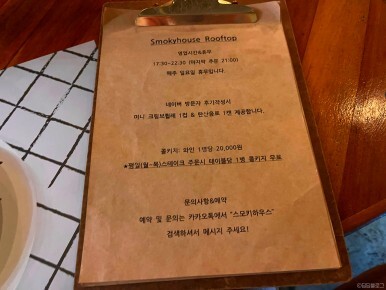 Smokyhouse Rooftop
영업시간&휴무
17:30~22:30 (마지막 주문 21:00)
매주 일요일 휴무입니다.
네이버 방문자 후기작성시
미니 크림브륄레 1컵 & 탄산음료 1캔 제공합니다.
콜키지: 와인 1병당 20,000원
*평일(월~목)스테이크 주문시 테이블당 1병 콜키지 무료
문의사항&예약
예약 및 문의는 카카오톡에서 "스모키하우스"
검색하셔서 메시지 주세요!